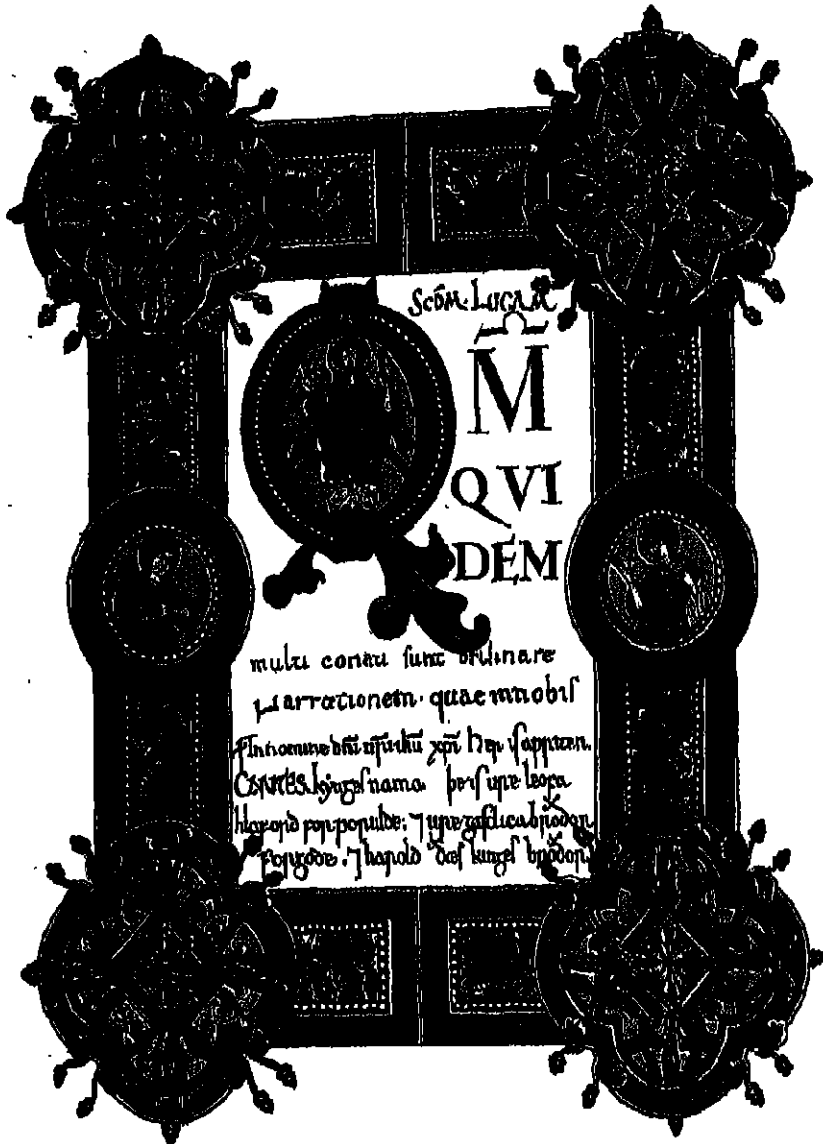 SCDM. LUCAM
QM
QVI
DEM
multi conati sunt ordinare
Narrationem. quae innobis
Innomine dni nri ihu xpi Her is awriten.
CNVTES kynges nama. þe is ure leofa
hlaford for worulde; ⁊ ure gastlica broðor
for gode. ⁊ harold ðæs kinges broðor.